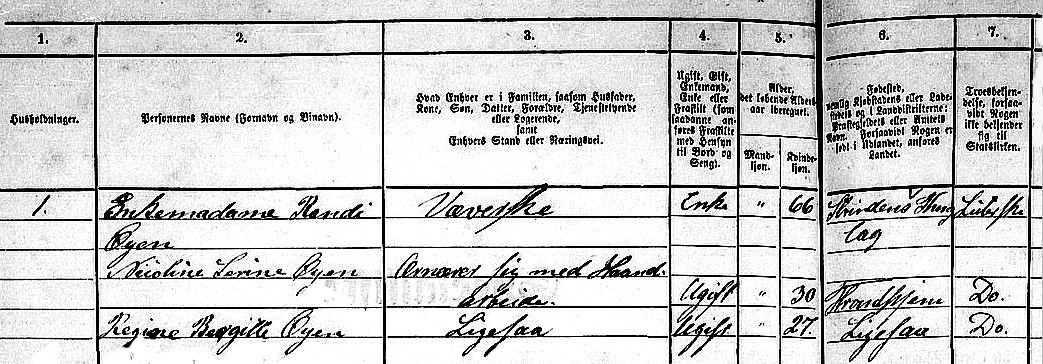 1. 2. 3. 4. 5. 6. 7.
Husholdninger.
Personernes Navne (Fornavn og Binavn).
Hvad Enhver er i Familien, saasom Husfader,
Kone, Søn, Datter, Forældre, Tjenestetyende
eller Logerende,
samt
Enhvers Stand eller Næringsvei.
Ugift, Gift,
Enkemand,
Enke eller
Fraskilt (som
saadanne an-
føres Fraskilte
med Hensyn
til Bord og
Seng).
Alder,
det løbende Aldets
aar iberegnet.
Mand-
kjøn.
Kvinde-
kjøn.
Fødested,
nemlig Kjøbstadens eller Lade-
stedets og i Landdistrikterne:
Præstegjeldets eller Amtets
Navn. Forsaavidt Nogen er
født i Udlandet, anføres
Landet.
Troesbekjen-
delse, forsaa-
vidt Nogen
ikke bekjender
sig til
Statskirken.
1. Enkemadame Randi Væverske Enke " 66 Strindens Thing Luthrske
Øyen lag
Nicoline Serine Øyen Ernærer sig med Haand-
arbeide. Ugift " 30 Trondhjem Do.
Regine Bergitte Øyen Ligesaa Ugift " 27. Ligesaa Do.